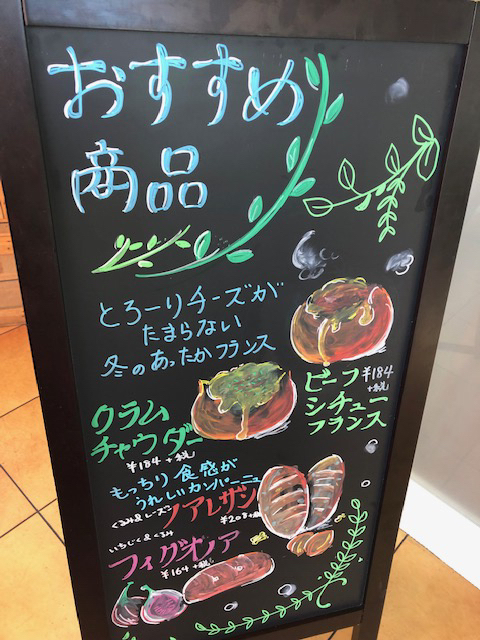 おすすめ
商品
とろーりチーズが
たまらない
冬のあったかフランス
ビーフ ¥184
+税
シチュー
フランス
クラム
チャウダー
¥184 +税
もっちり食感が
うれしいカンパーニュ
くるみ&レーズン ノアレザン
¥208+税
いちじく&くるみ
フィグオノア
¥164 +税